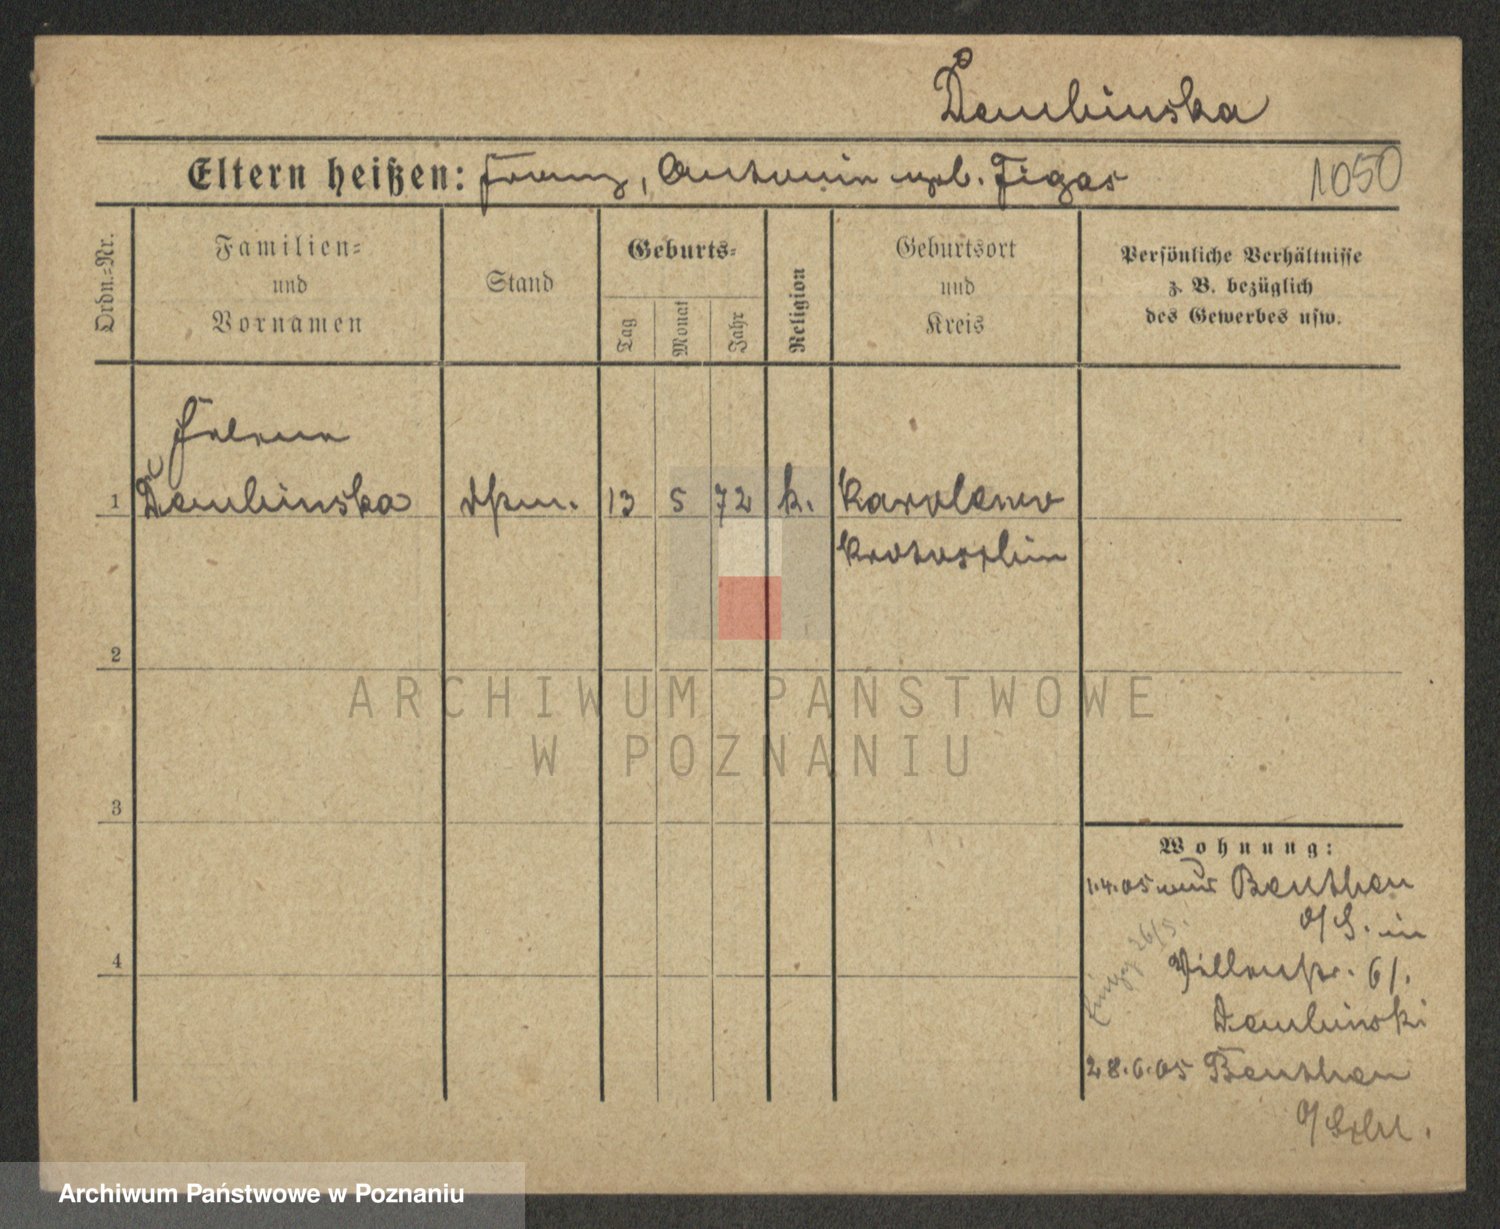 Dembinska
Eltern heißen: Franz, Antonie geb. Figas
1050
Ordn.=Nr.
Familien=
und
Vornamen
Stand
Geburts=
Tag
Monat
Jahr
Religion
Geburtsort
und
Kreis
Persönliche Verhältnisse
z. B. bezüglich
des Gewerbes usw.
Helene
1 Dembinska 13 5 72 k. Karolewo
Krotoschin
2
ARCHIWUM PAŃSTWOWE
W POZNANIU
3
4
Wohnung:
1.4.05 Beuthen
O/S. in
61.
Dembinski
28.6.05 Beuthen
O/Schl.
Archiwum Państwowe w Poznaniu